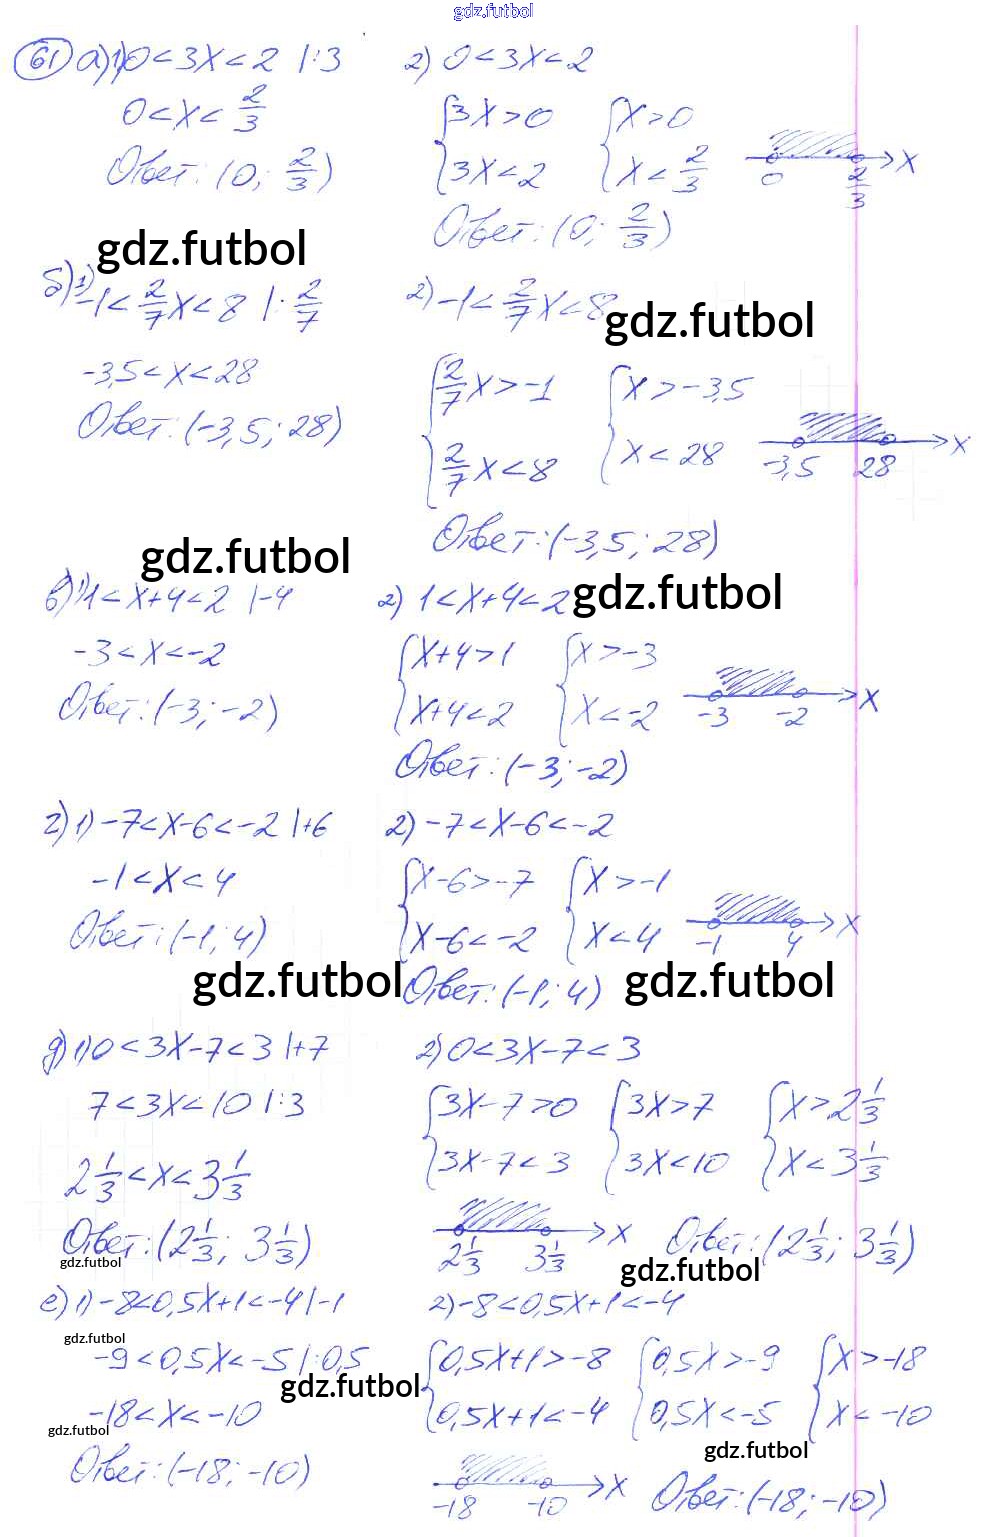 gdz.futbol
61 а) 1) 0<3x<2 |:3
0<x<2/3
Ответ: (0; 2/3)
2) 0<3x<2
{3x>0 {x>0
{3x<2 {x<2/3
0 2/3 x
Ответ: (0; 2/3)
gdz.futbol
б) 1) -1<2/7x<8 |:2/7
-3,5<x<28
Ответ: (-3,5; 28)
2) -1<2/7x<8
gdz.futbol
{2/7x>-1 {x>-3,5
{2/7x<8 {x<28
-3,5 28 x
Ответ: (-3,5; 28)
gdz.futbol
в) 1) 1<x+4<2 |-4
-3<x<-2
Ответ: (-3; -2)
2) 1<x+4<2
gdz.futbol
{x+4>1 {x>-3
{x+4<2 {x<-2
-3 -2 x
Ответ: (-3; -2)
г) 1) -7<x-6<-2 |+6
-1<x<4
Ответ: (-1; 4)
gdz.futbol
2) -7<x-6<-2
{x-6>-7 {x>-1
{x-6<-2 {x<4
-1 4 x
Ответ: (-1; 4)
gdz.futbol
д) 1) 0<3x-7<3 |+7
7<3x<10 |:3
2 1/3<x<3 1/3
Ответ: (2 1/3; 3 1/3)
gdz.futbol
2) 0<3x-7<3
{3x-7>0 {3x>7 {x>2 1/3
{3x-7<3 {3x<10 {x<3 1/3
2 1/3 3 1/3 x
Ответ: (2 1/3; 3 1/3)
gdz.futbol
е) 1) -8<0,5x+1<-4 |-1
gdz.futbol
-9<0,5x<-5 |:0,5
gdz.futbol
-18<x<-10
gdz.futbol
Ответ: (-18; -10)
2) -8<0,5x+1<-4
{0,5x+1>-8 {0,5x>-9 {x>-18
{0,5x+1<-4 {0,5x<-5 {x<-10
gdz.futbol
-18 -10 x
Ответ: (-18; -10)